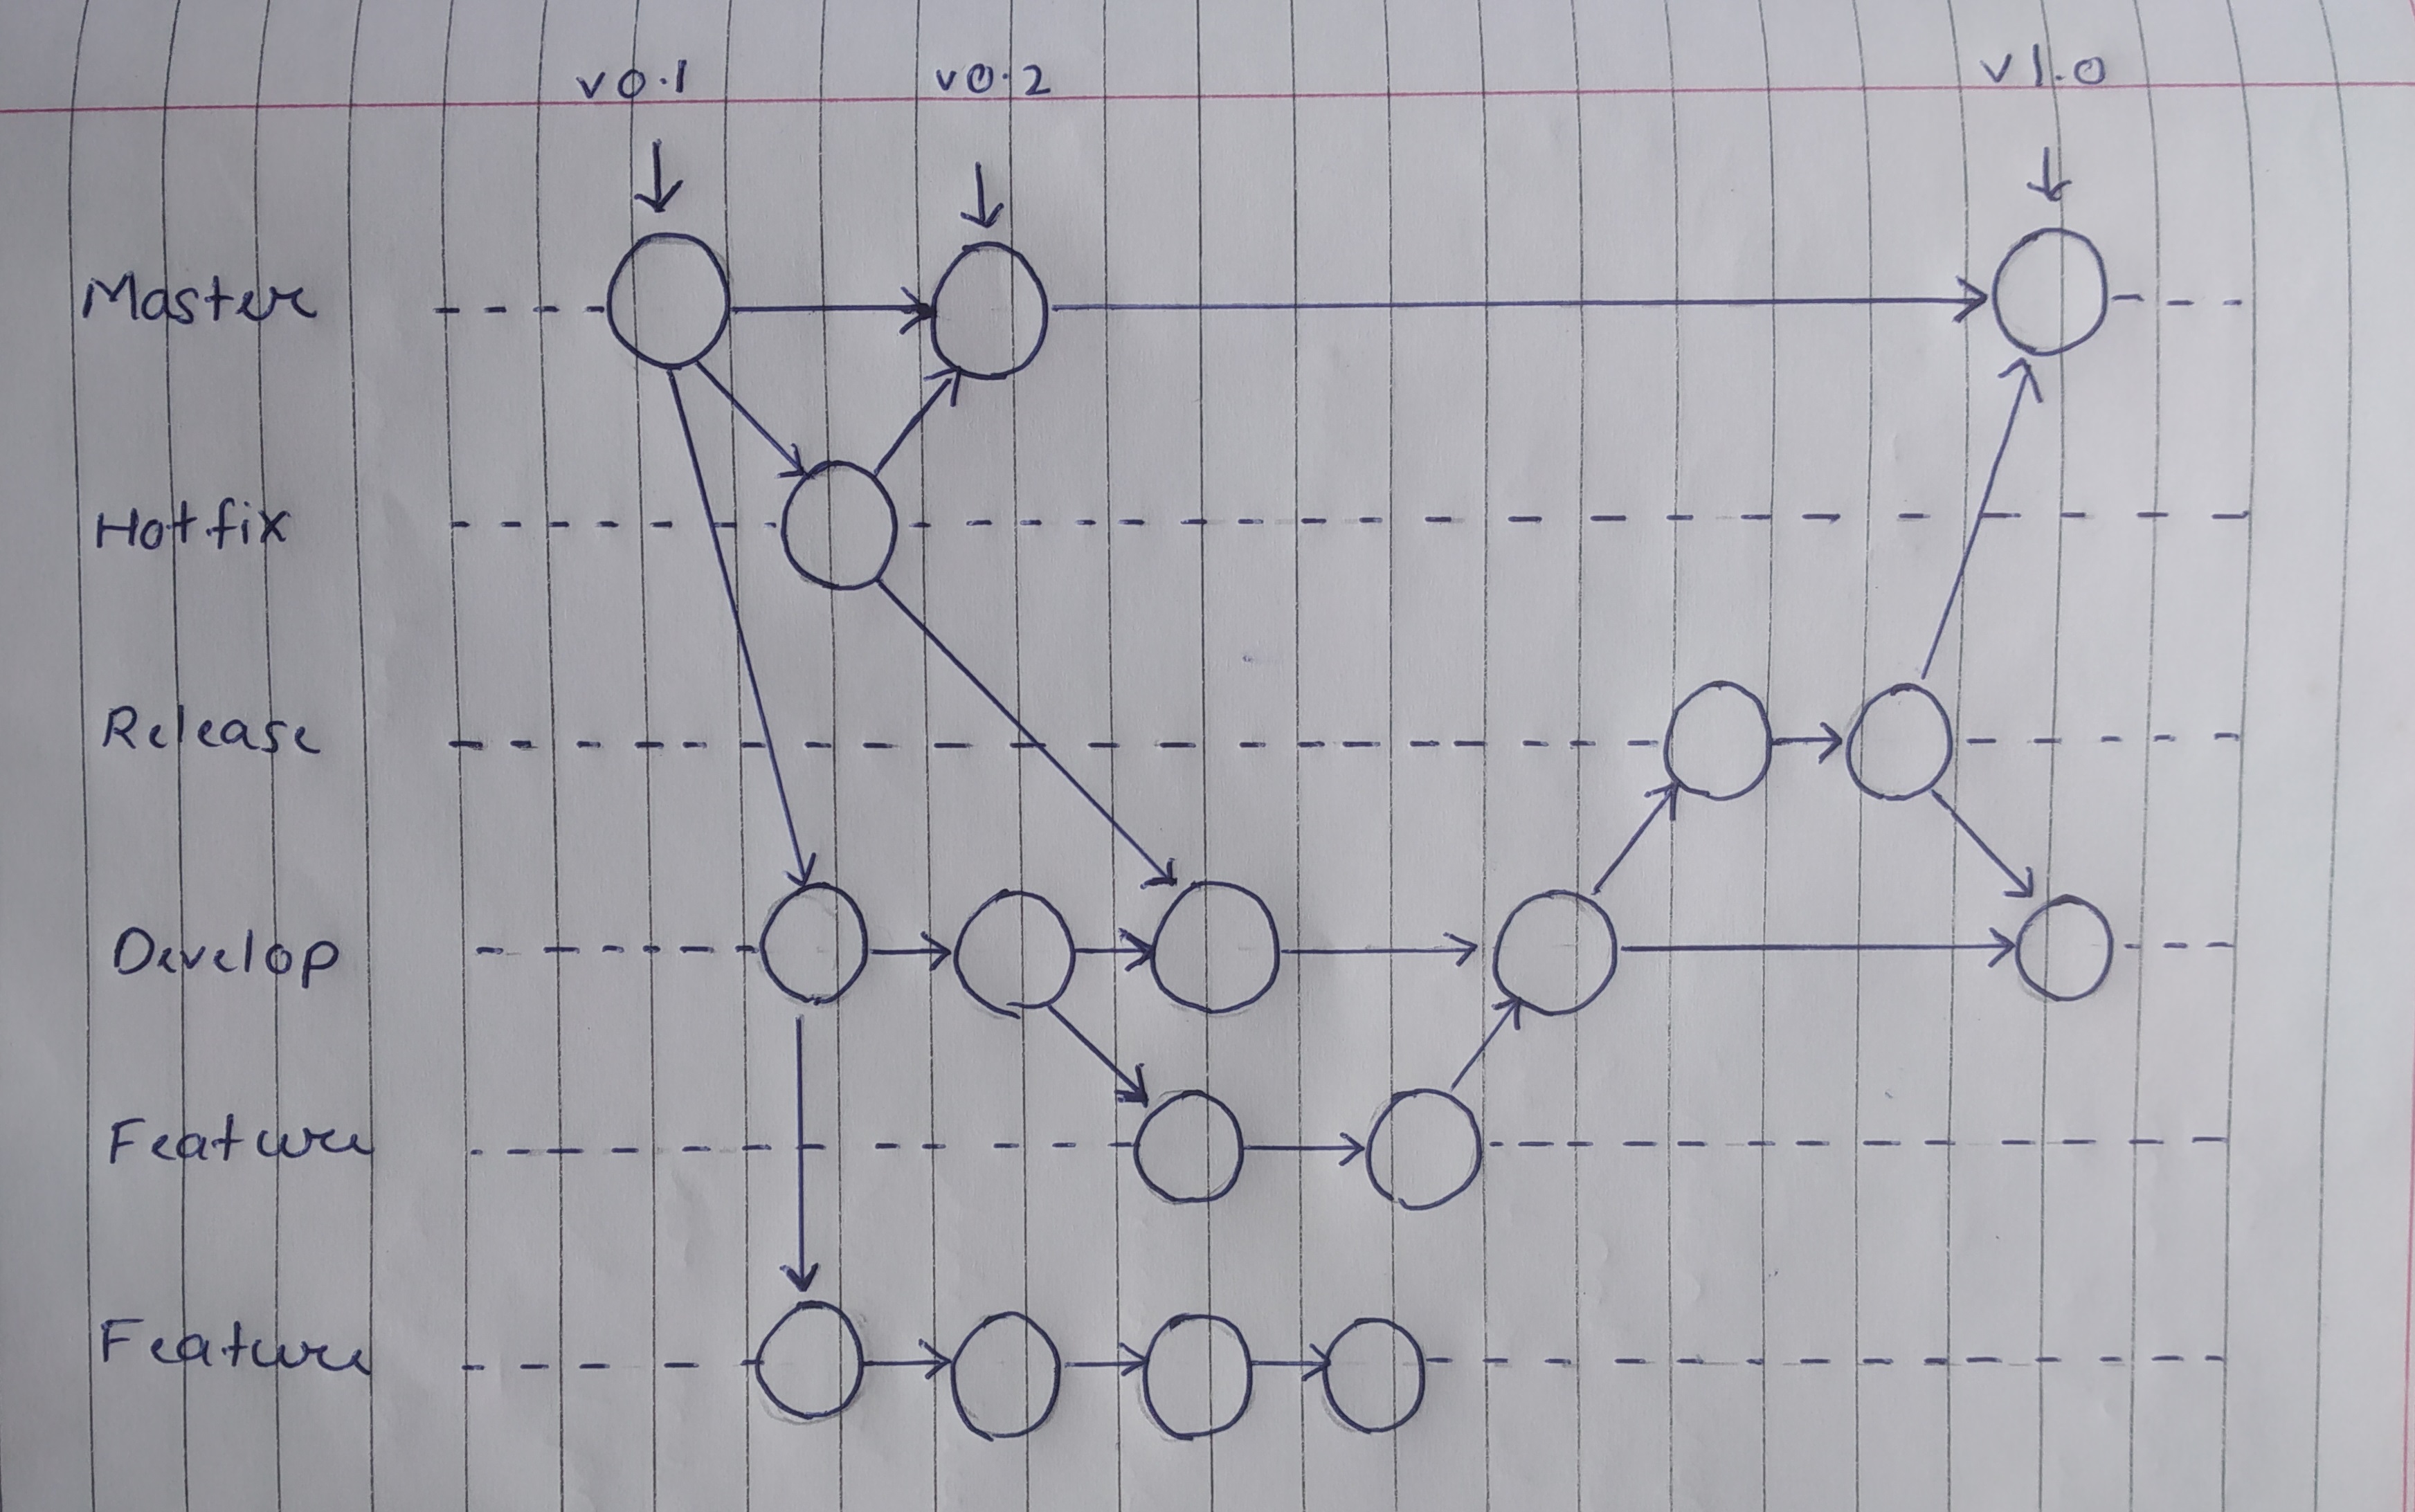 v0.1 v0.2 v1.0
Master
Hotfix
Release
Develop
Feature
Feature